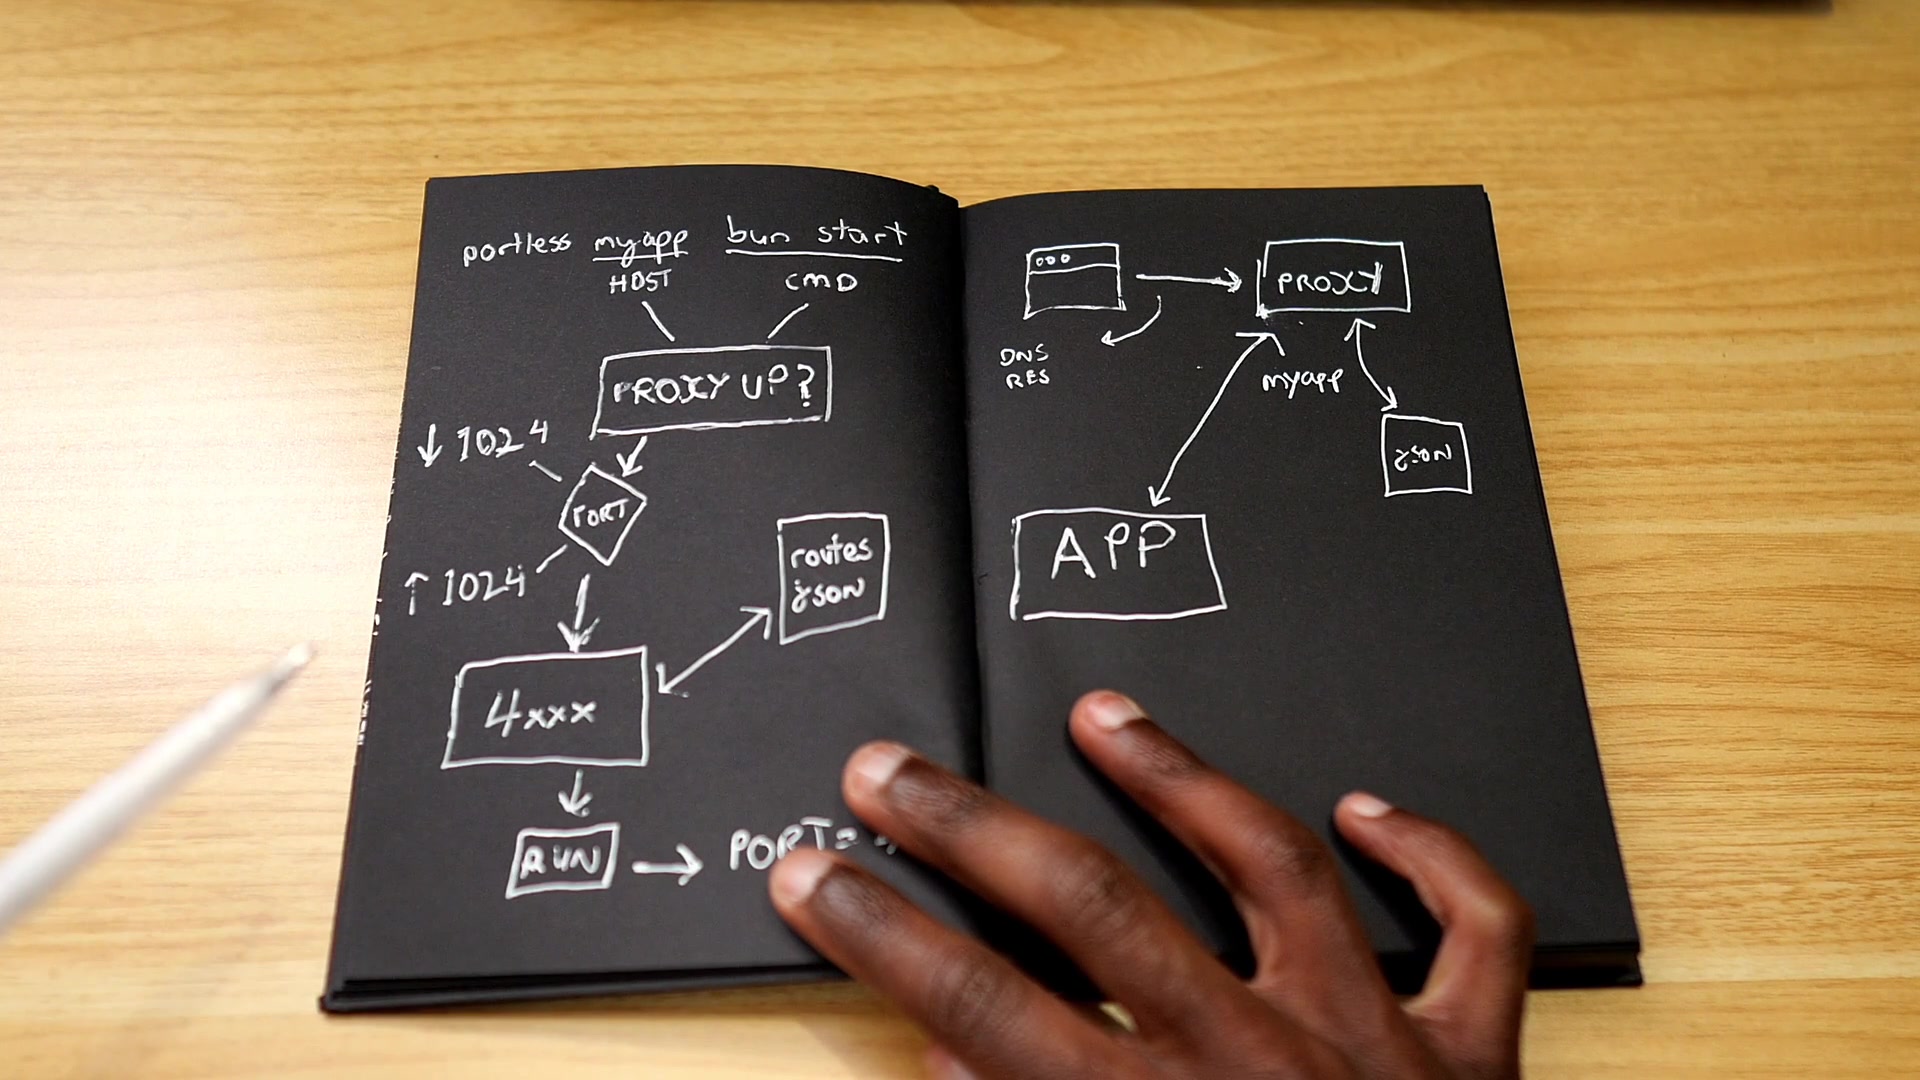 portless myapp bun start
HOST CMD
PROXY UP?
↓ 1024
PORT
↑ 1024
routes
json
4xxx
RUN → PORT=
PROXY
DNS
RES
myapp
json
APP